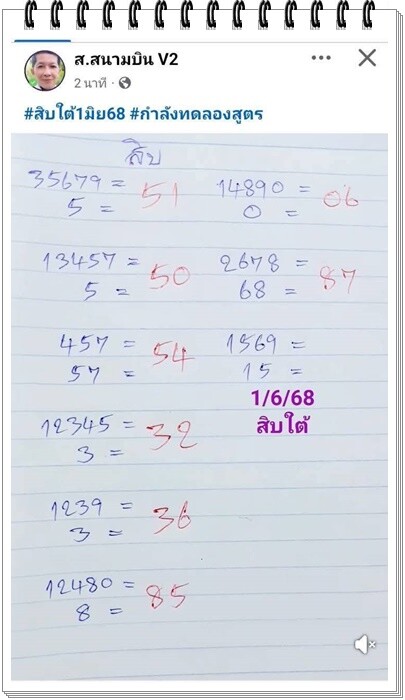 ส.สนามบิน V2
2 นาที
#สิบใต้1มิย68 #กำลังทดลองสูตร
สิบ
35679 = 51
5 =
13457 = 50
5 =
457 = 54
57 =
12345 = 32
3 =
1239 = 36
3 =
12480 = 85
8 =
14890 = 06
0 =
2678 = 87
68 =
1569 =
15 =
1/6/68
สิบใต้